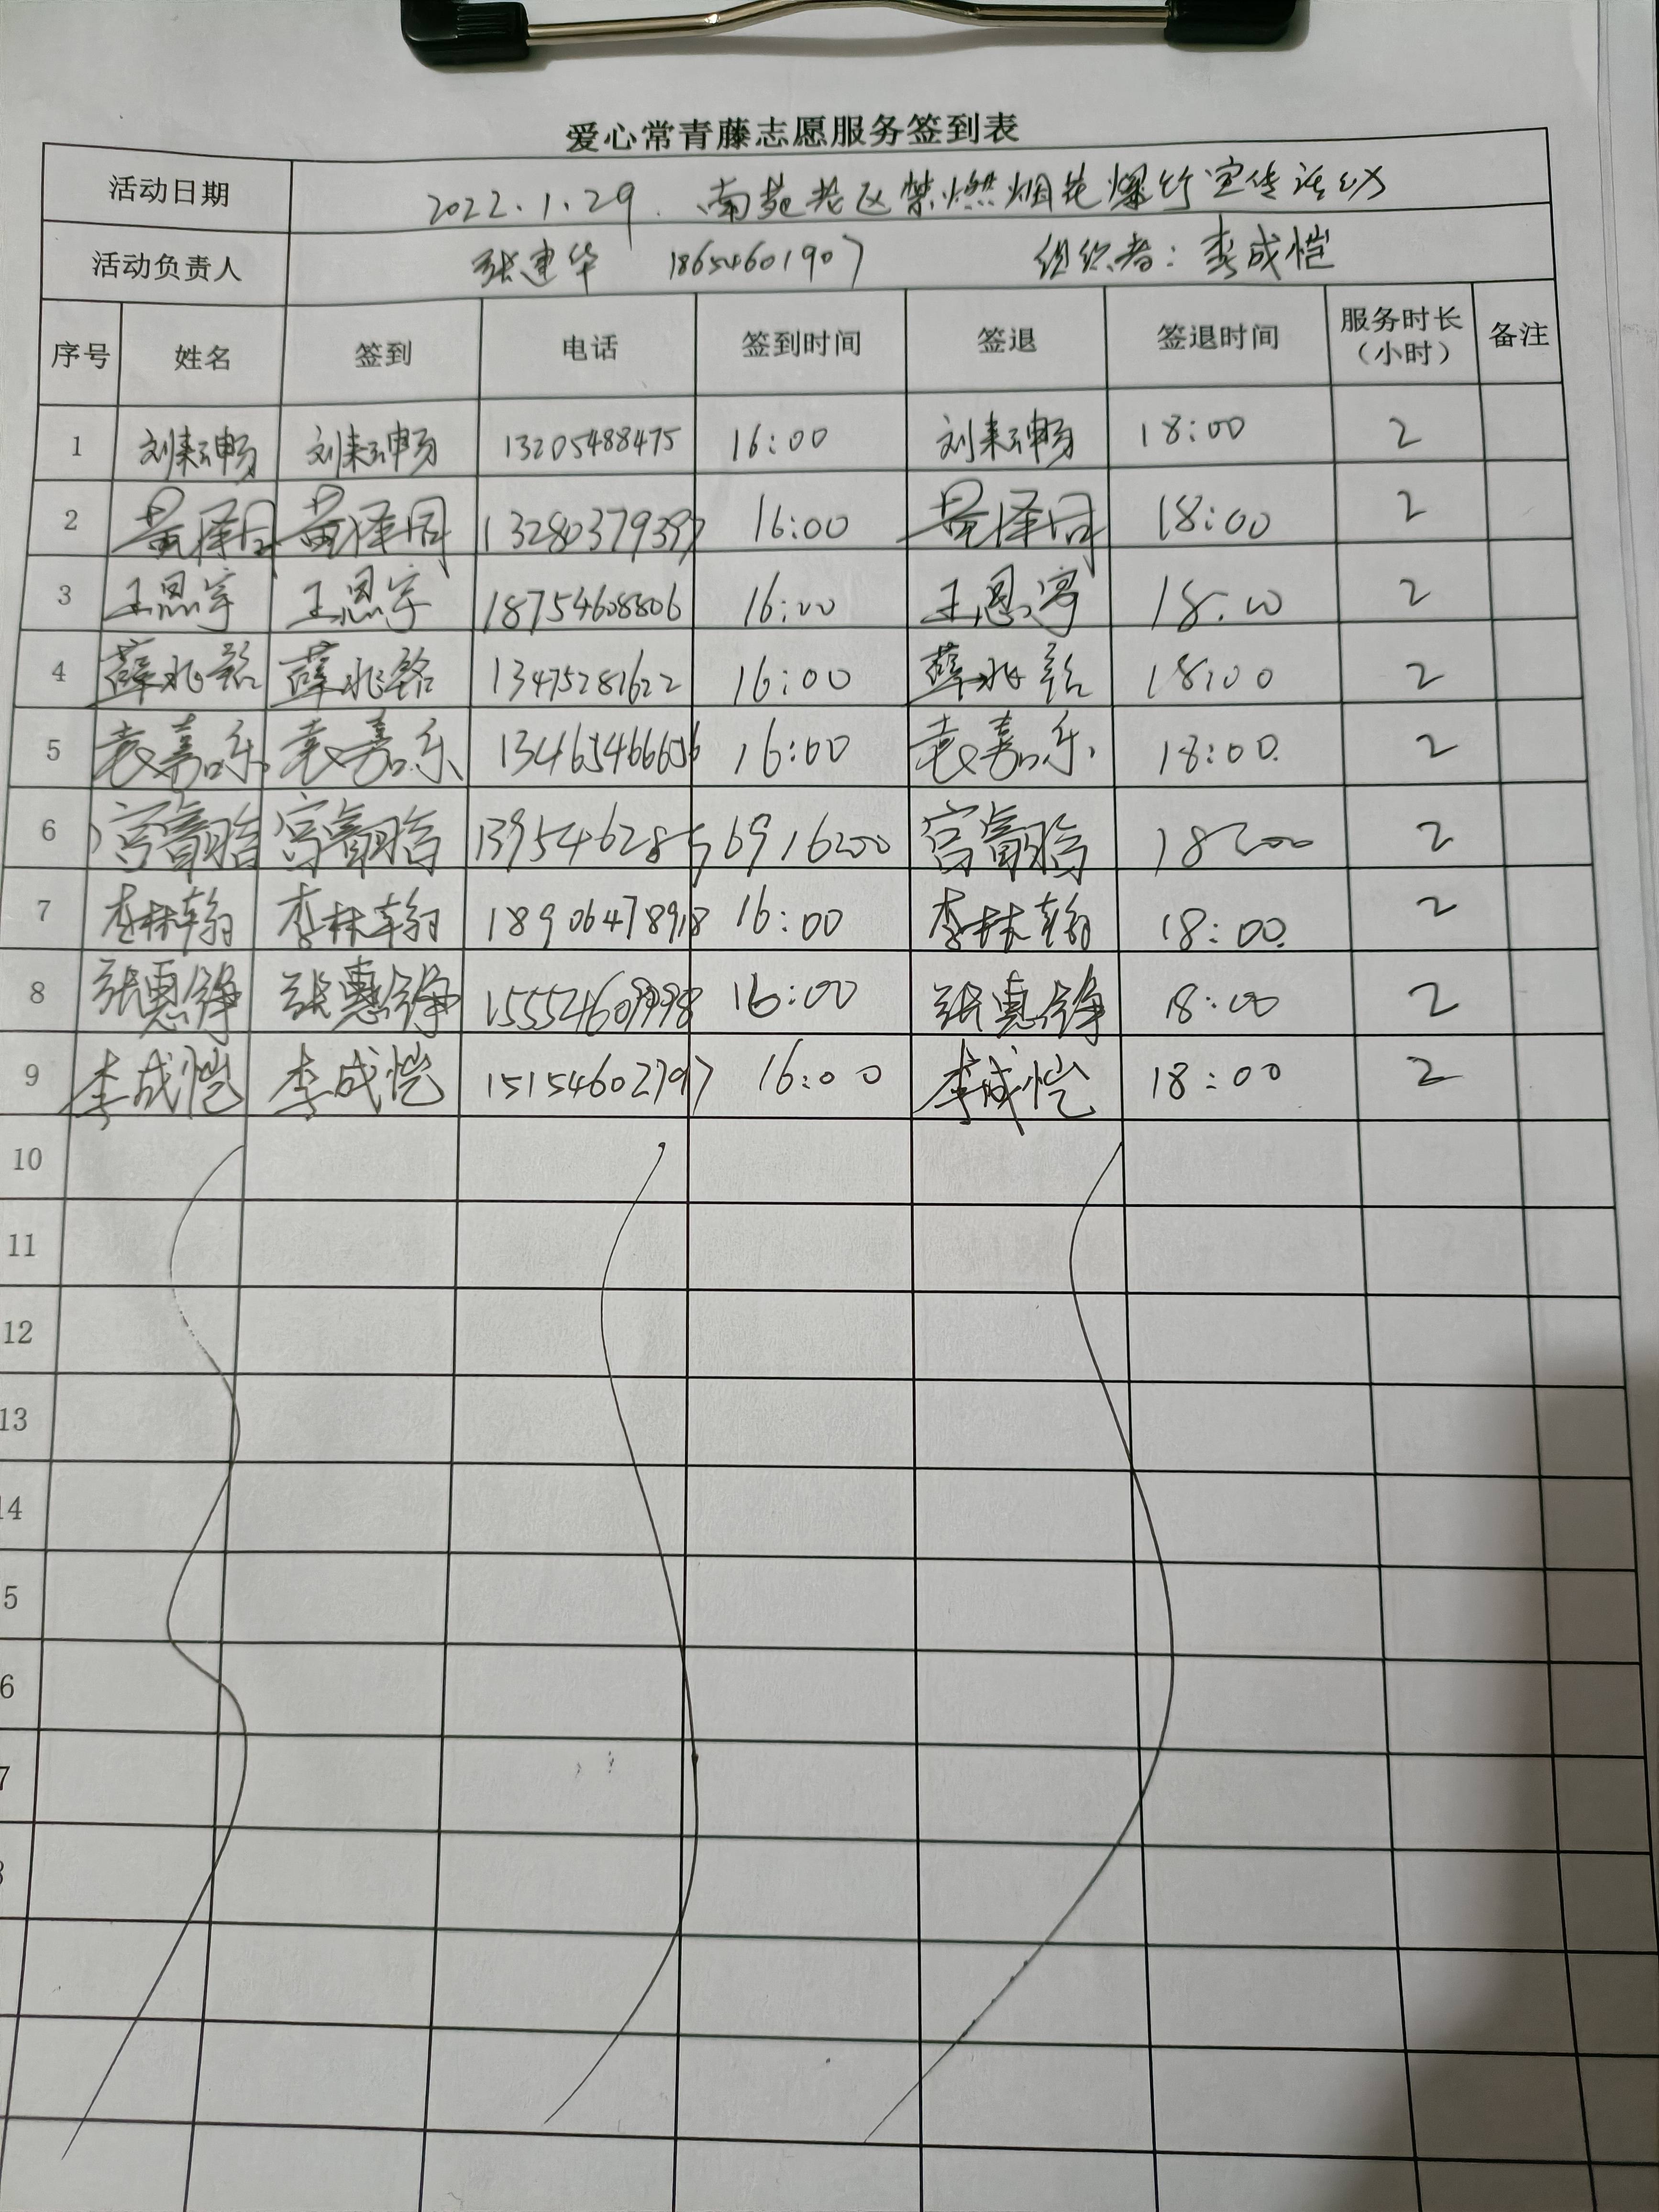 爱心常青藤志愿服务签到表
活动日期 2022.1.29. 南苑老区禁燃烟花爆竹宣传活动
活动负责人 张建华 18654601907 组织者：李成恺
序号 姓名 签到 电话 签到时间 签退 签退时间 服务时长（小时） 备注
1 刘耘畅 刘耘畅 13205488475 16:00 刘耘畅 18:00 2
2 黄泽同 黄泽同 13280379397 16:00 黄泽同 18:00 2
3 王恩宇 王恩宇 18754608806 16:00 王恩宇 18:00 2
4 薛兆铭 薛兆铭 13475281622 16:00 薛兆铭 18:00 2
5 袁嘉乐 袁嘉乐 13465466656 16:00 袁嘉乐 18:00. 2
6 13954628569 16:00 18:00 2
7 李林翰 李林翰 18906478918 16:00 李林翰 18:00. 2
8 张惠铮 张惠铮 15554609998 16:00 张惠铮 18:00 2
9 李成恺 李成恺 15154602797 16:00 李成恺 18:00 2
10
11
12
13
14
5
6
7